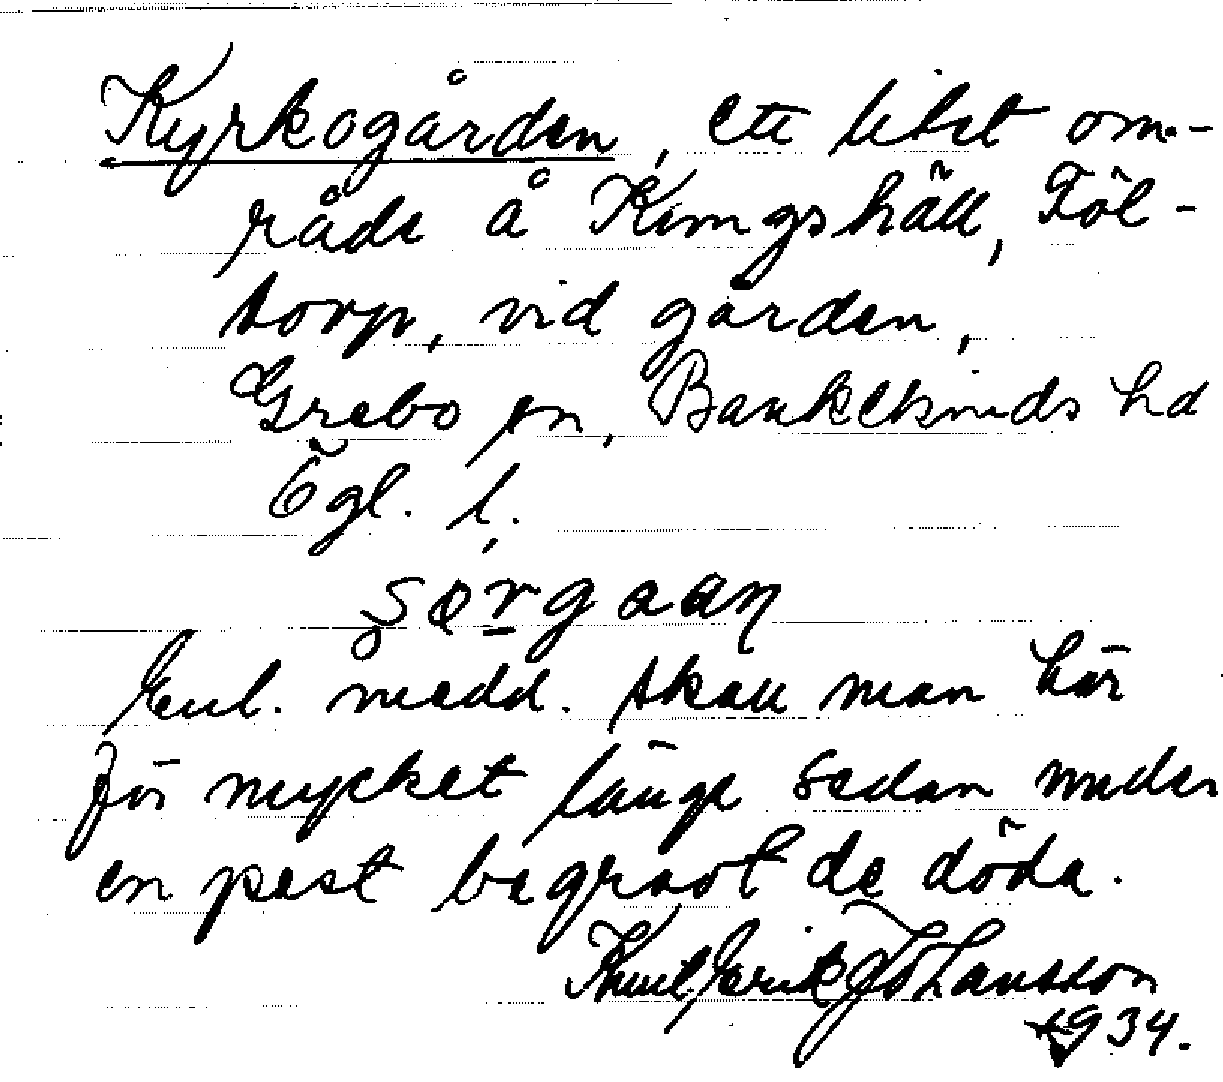 Kyrkogården, ett litet om-
råde å Kungshäll, Föl-
torp, vid gården,
Grebo sn, Bankekinds hd
Ögl. l.
Enl. medd. skall man här
för mycket länge sedan under
en pest begravt de döda.
Knut Erik Johansson
1934.